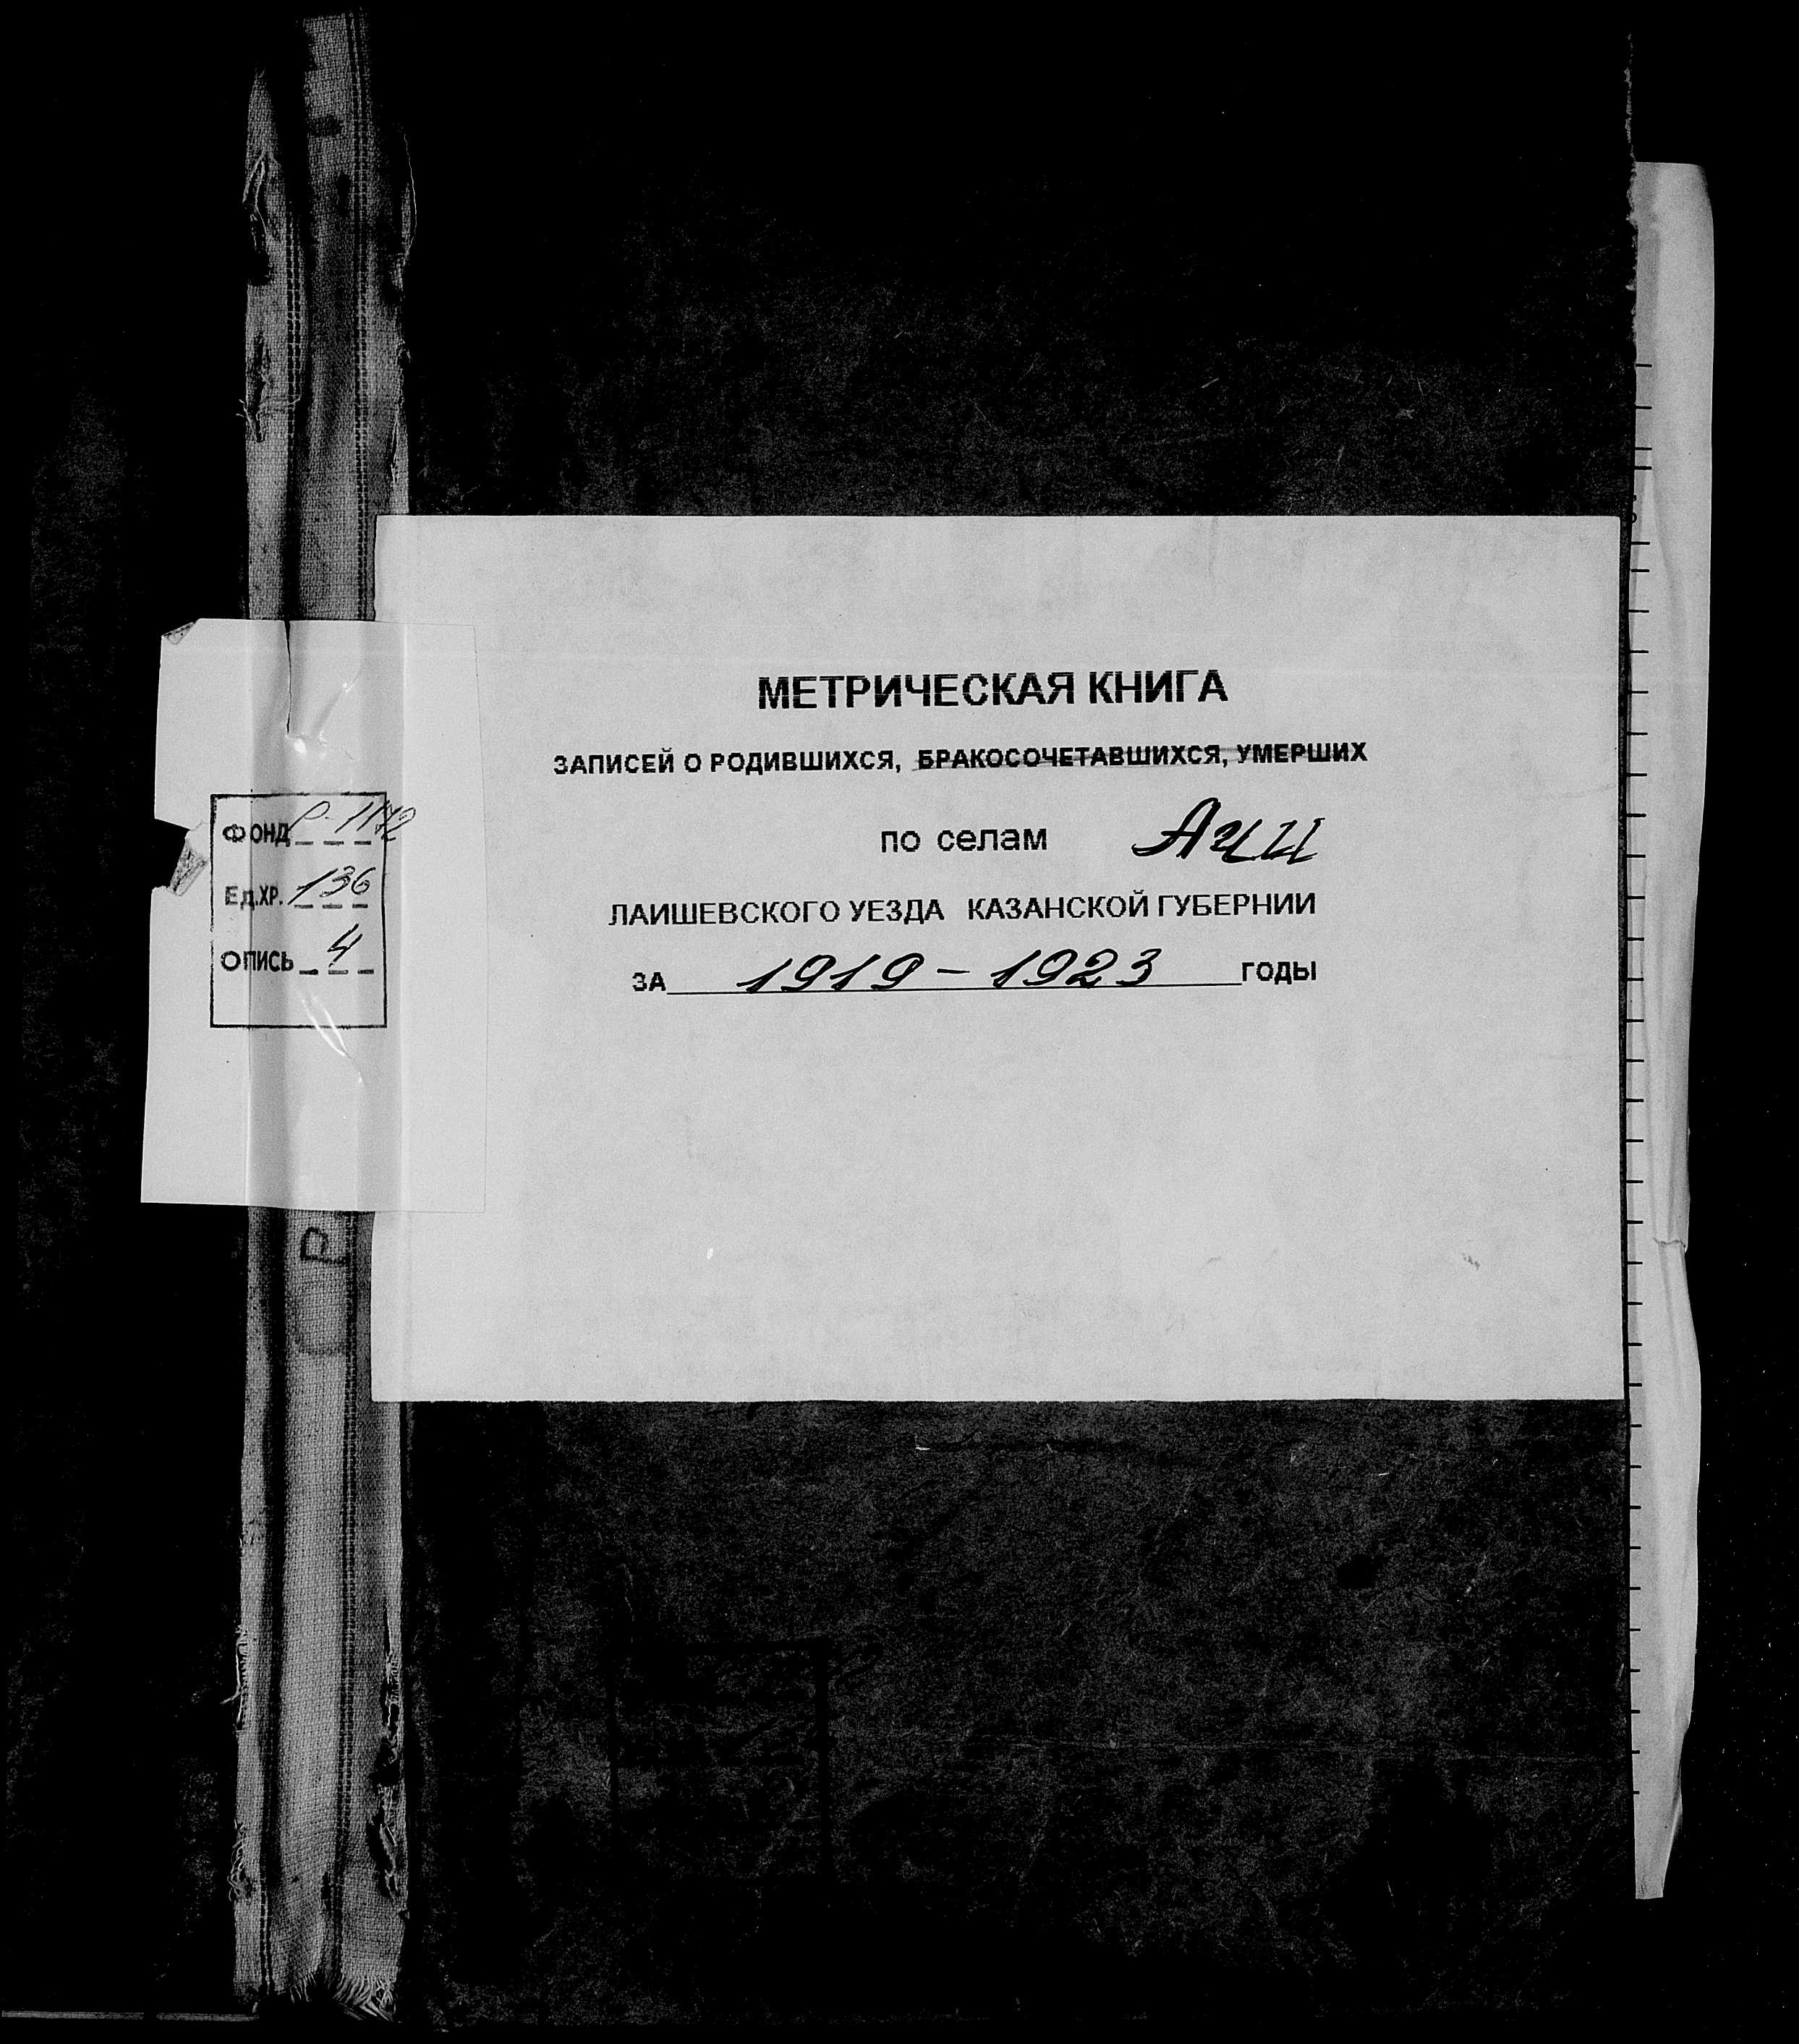 МЕТРИЧЕСКАЯ КНИГА
ЗАПИСЕЙ О РОДИВШИХСЯ, БРАКОСОЧЕТАВШИХСЯ, УМЕРШИХ
по селам Ачи
ЛАИШЕВСКОГО УЕЗДА КАЗАНСКОЙ ГУБЕРНИИ
ЗА 1919 - 1923 ГОДЫ
ФОНД Р-1172
Ед.ХР. 136
ОПИСЬ 4
Р